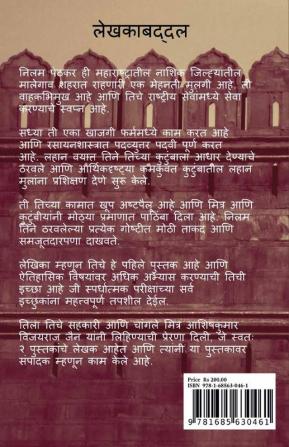 लेखकाबद्दल
निलम पटकर ही महाराष्ट्रातील नाशिक जिल्ह्यातील
मालेगाव शहरात राहणारी एक मेहनती मुलगी आहे. ती
वाहकभिमुख आहे आणि तिचे राष्ट्रीय सेवांमध्ये सेवा
करण्याचे स्वप्न आहे.
सध्या ती एका खाजगी फर्ममध्ये काम करत आहे
आणि रसायनशास्त्रात पदव्युत्तर पदवी पूर्ण करत
आहे. लहान वयात तिने तिच्या कुटुंबाला आधार देण्याचे
ठरवले आणि और्थिकदृष्ट्या कमकुवत कुटुंबातील लहान
मुलांना प्रशिक्षण देणे सुरू केले.
ती तिच्या कामात खुप अष्टपैलू आहे आणि मित्र आणि
कुटुंबीयांनी मोठ्या प्रमाणात पाठिंबा दिला आहे. निलम
तिने ठरवलेल्या प्रत्येक गोष्टीत मोठी ताकद आणि
समजूतदारपणा दाखवते.
लेखिका म्हणून तिचे हे पहिले पुस्तक आहे आणि
ऐतिहासिक विषयांवर अधिक अभ्यास करण्याची तिची
इच्छा आहे जी स्पर्धात्मक परीक्षांच्या सर्व
इच्छुकांना महत्वपूर्ण तपशील देईल.
तिला तिचे सहकारी आणि चांगले मित्र आशिषकुमार
विजयराज जैन यांनी लिहिण्याची प्रेरणा दिली, जे स्वतः
२ पुस्तकांचे लेखक आहेत आणि त्यांनी या पुस्तकावर
संपादक म्हणून काम केले आहे.
Price Rs 200.00
ISBN 978-1-68563-046-1
9 781685 630461